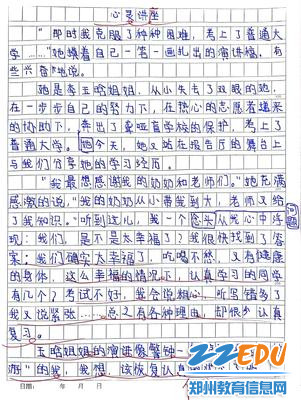 心灵讲座
"即时我克服了种种困难,考上了普通大
学……"她摸着自己一笔一画扎出的演讲稿,有
些兴奋地说。
"她是李玉晗姐姐,从小失去了双眼的她,
在一步步自己的努力下,在热心的志愿者道来
的协助下,奔出了聋哑盲学校的保护,考上了
普通大学。今天,她又站在报告厅的舞台上
与我们分享她的学习经历。
"我最想感谢我的奶奶和老师们。"她充满
感激的说,"我的奶奶从小带我到大,老师又给
了我知识。"听到这儿,我一个念头从我心中浮
现:我们,是不是太幸福了?我很快找到了答
案:我们确实太幸福了,吃喝不愁,又有健康
的身体,这么幸福的情况下,认真学习的同学
有几个?考试不好,我会说粗心,听写错多了
我又说紧张……总之有各种理由,却很少认真
复习。
玉晗姐姐的演讲像警钟
游"的我,我想,该恢复认真
日期: 年 月 日
ZZEDU
郑州教育信息网